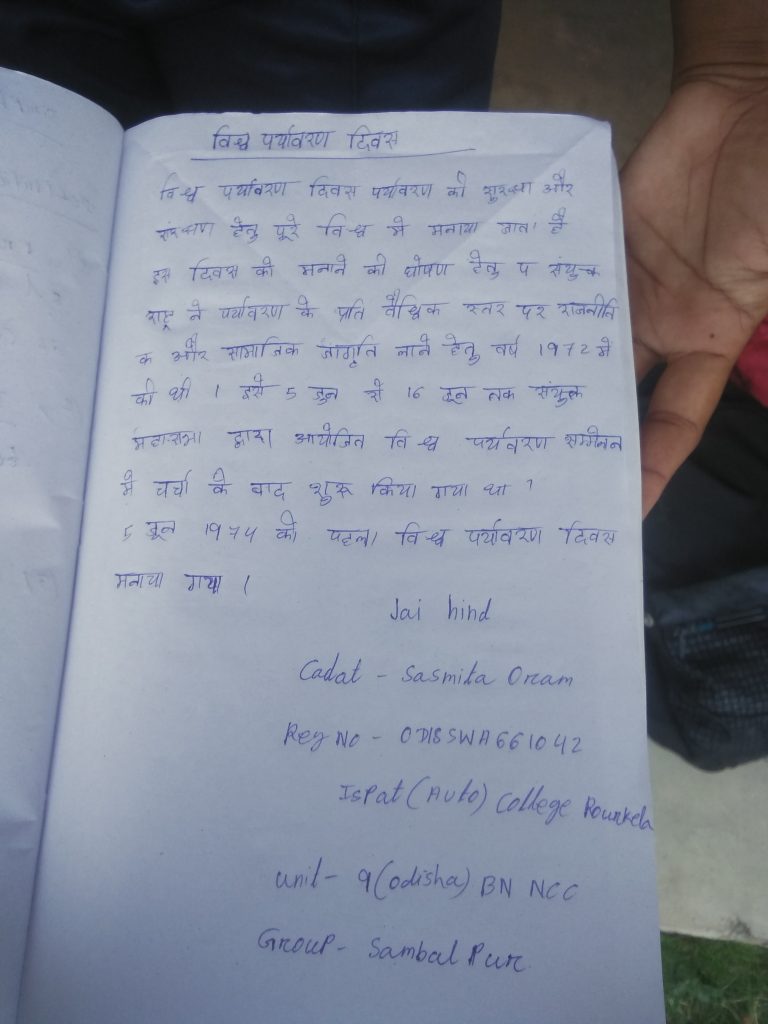 विश्व पर्यावरण दिवस
विश्व पर्यावरण दिवस पर्यावरण की सुरक्षा और
संरक्षण हेतु पूरे विश्व मे मनाया जाता है
इस दिवस को मनाने की घोषण हेतु प संयुक्त
राष्ट्र ने पर्यावरण के प्रति वैश्विक स्तर पर राजनीति
क और सामाजिक जागृति लाने हेतु वर्ष 1972 मे
की थी । इसे 5 जुन से 16 जून तक संयुक्त
महासभा द्वारा आयोजित विश्व पर्यावरण सम्मेलन
मे चर्चा के बाद शुरू किया गया था ?
5 जून 1974 को पहला विश्व पर्यावरण दिवस
मनाया गया ।
Jai hind
Cadat - Sasmita Oram
Reg No - OD18SWA661042
IsPat (Auto) College Rourkela
Unit - 9 (odisha) BN NCC
Group - Sambal Pur